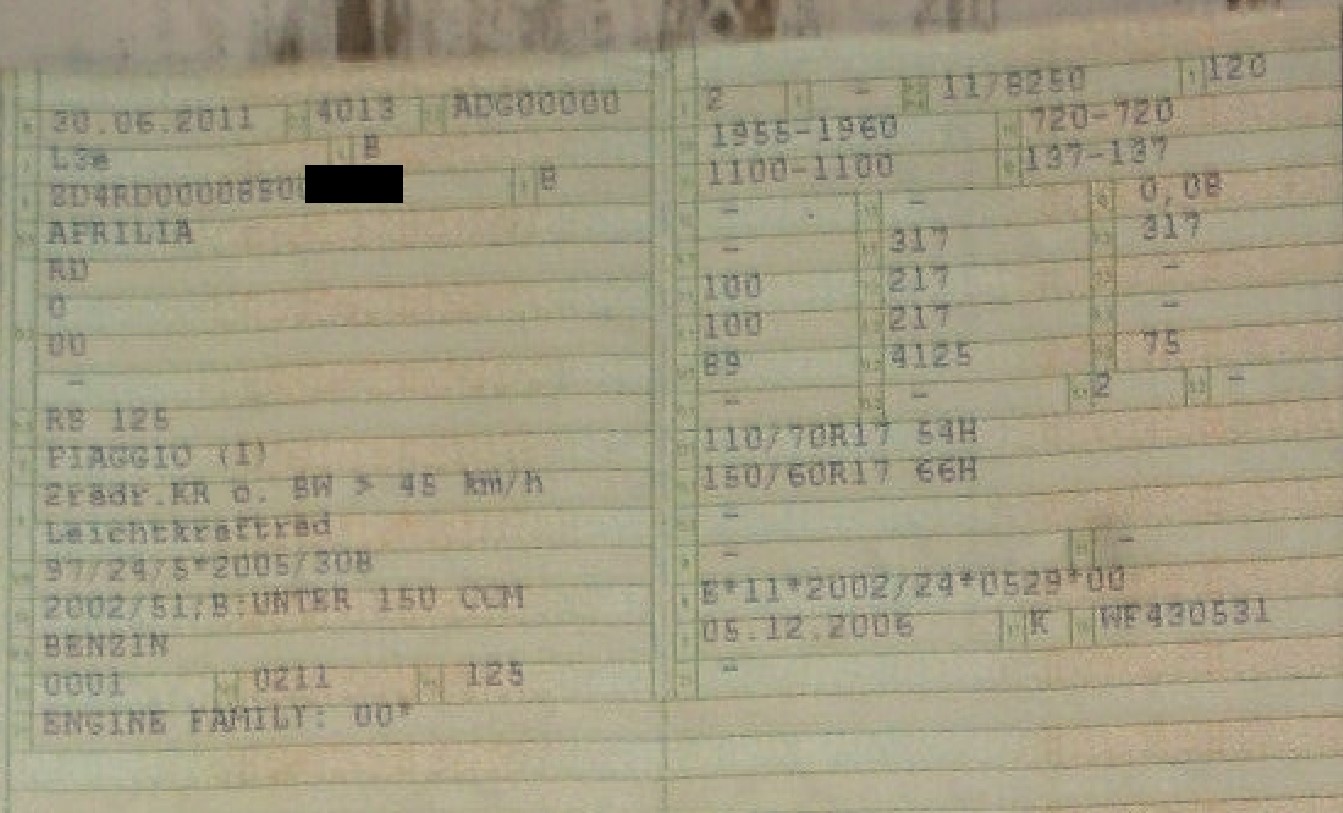 30.06.2011 4013 ADG00000
L3e B
ZD4RD00008S00 8
APRILIA
RD
0
00
-
RS 125
PIAGGIO (I)
2rädr.KR o. BW > 45 km/h
Leichtkraftrad
97/24/5*2005/30B
2002/51;B:UNTER 150 CCM
BENZIN
0001 0211 125
ENGINE FAMILY: 00*
2 - 11/8250 120
1955-1960 720-720
1100-1100 137-137
- - 0,08
- 317 317
100 217 -
100 217 -
89 4125 75
- - 2 -
110/70R17 54H
150/60R17 66H
-
- -
E*11*2002/24*0529*00
05.12.2006 K WF430531
-